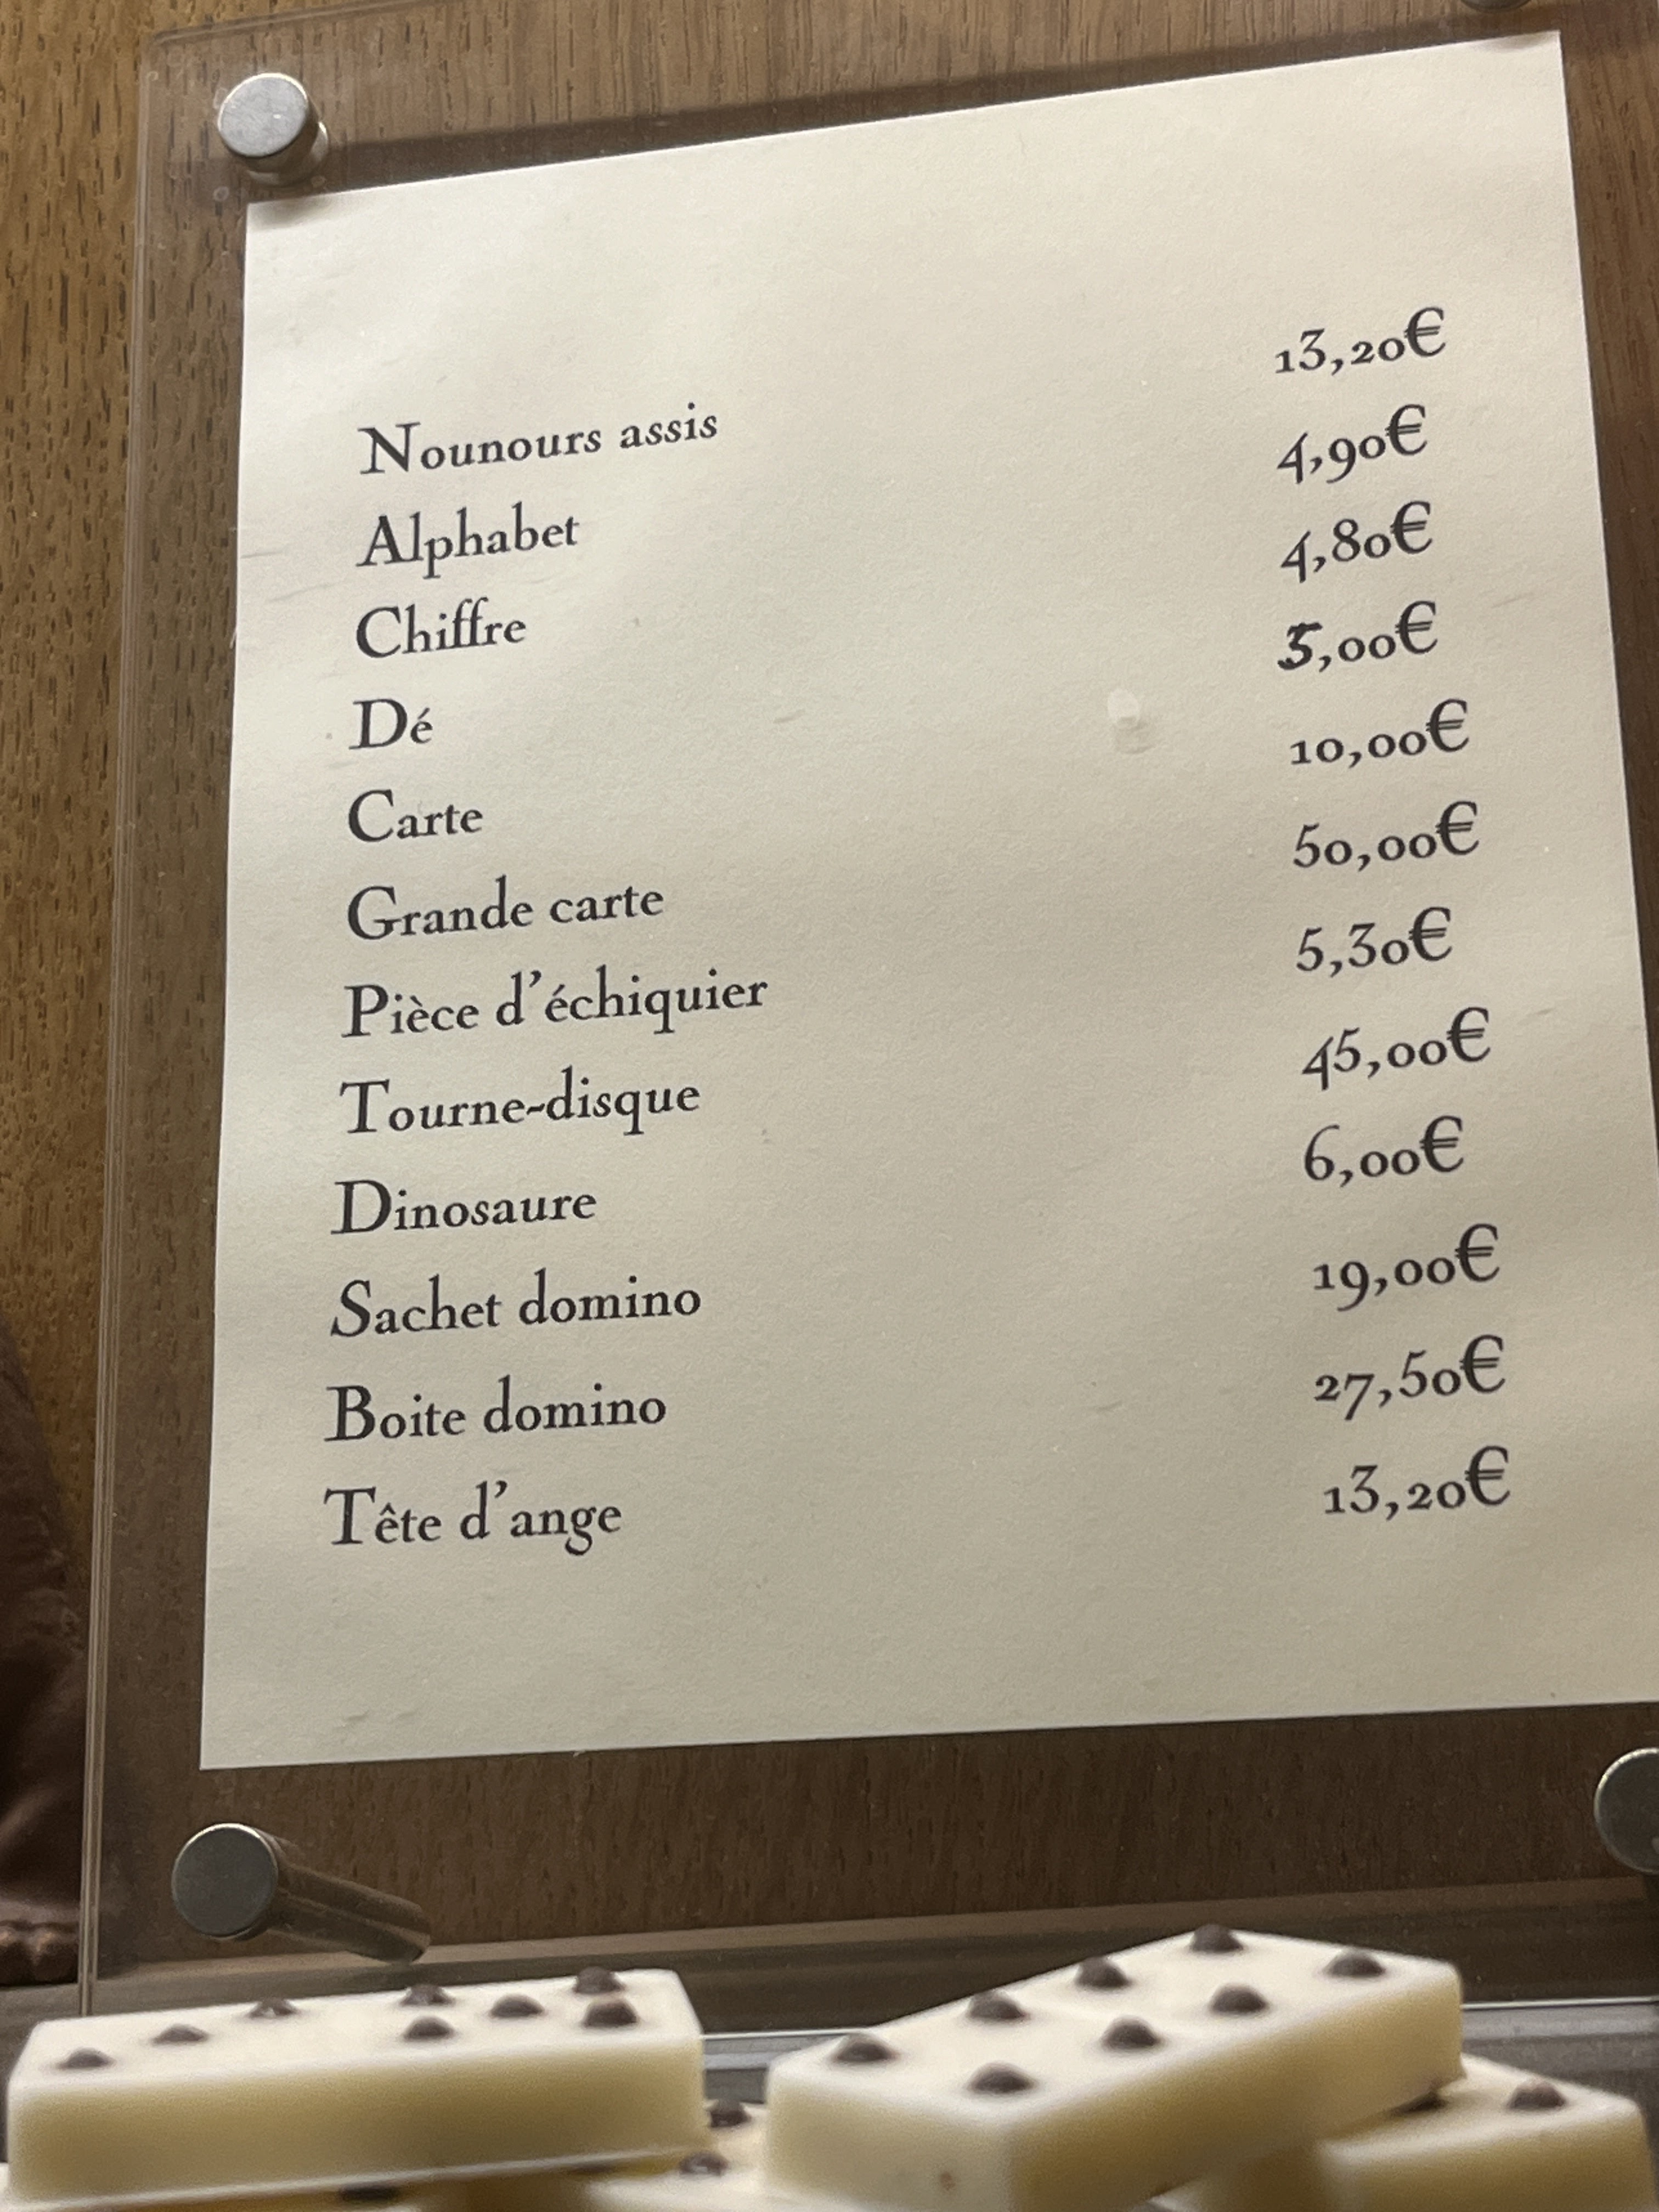 Nounours assis 13,20€
Alphabet 4,90€
Chiffre 4,80€
Dé 5,00€
Carte 10,00€
Grande carte 50,00€
Pièce d'échiquier 5,30€
Tourne-disque 45,00€
Dinosaure 6,00€
Sachet domino 19,00€
Boite domino 27,50€
Tête d'ange 13,20€